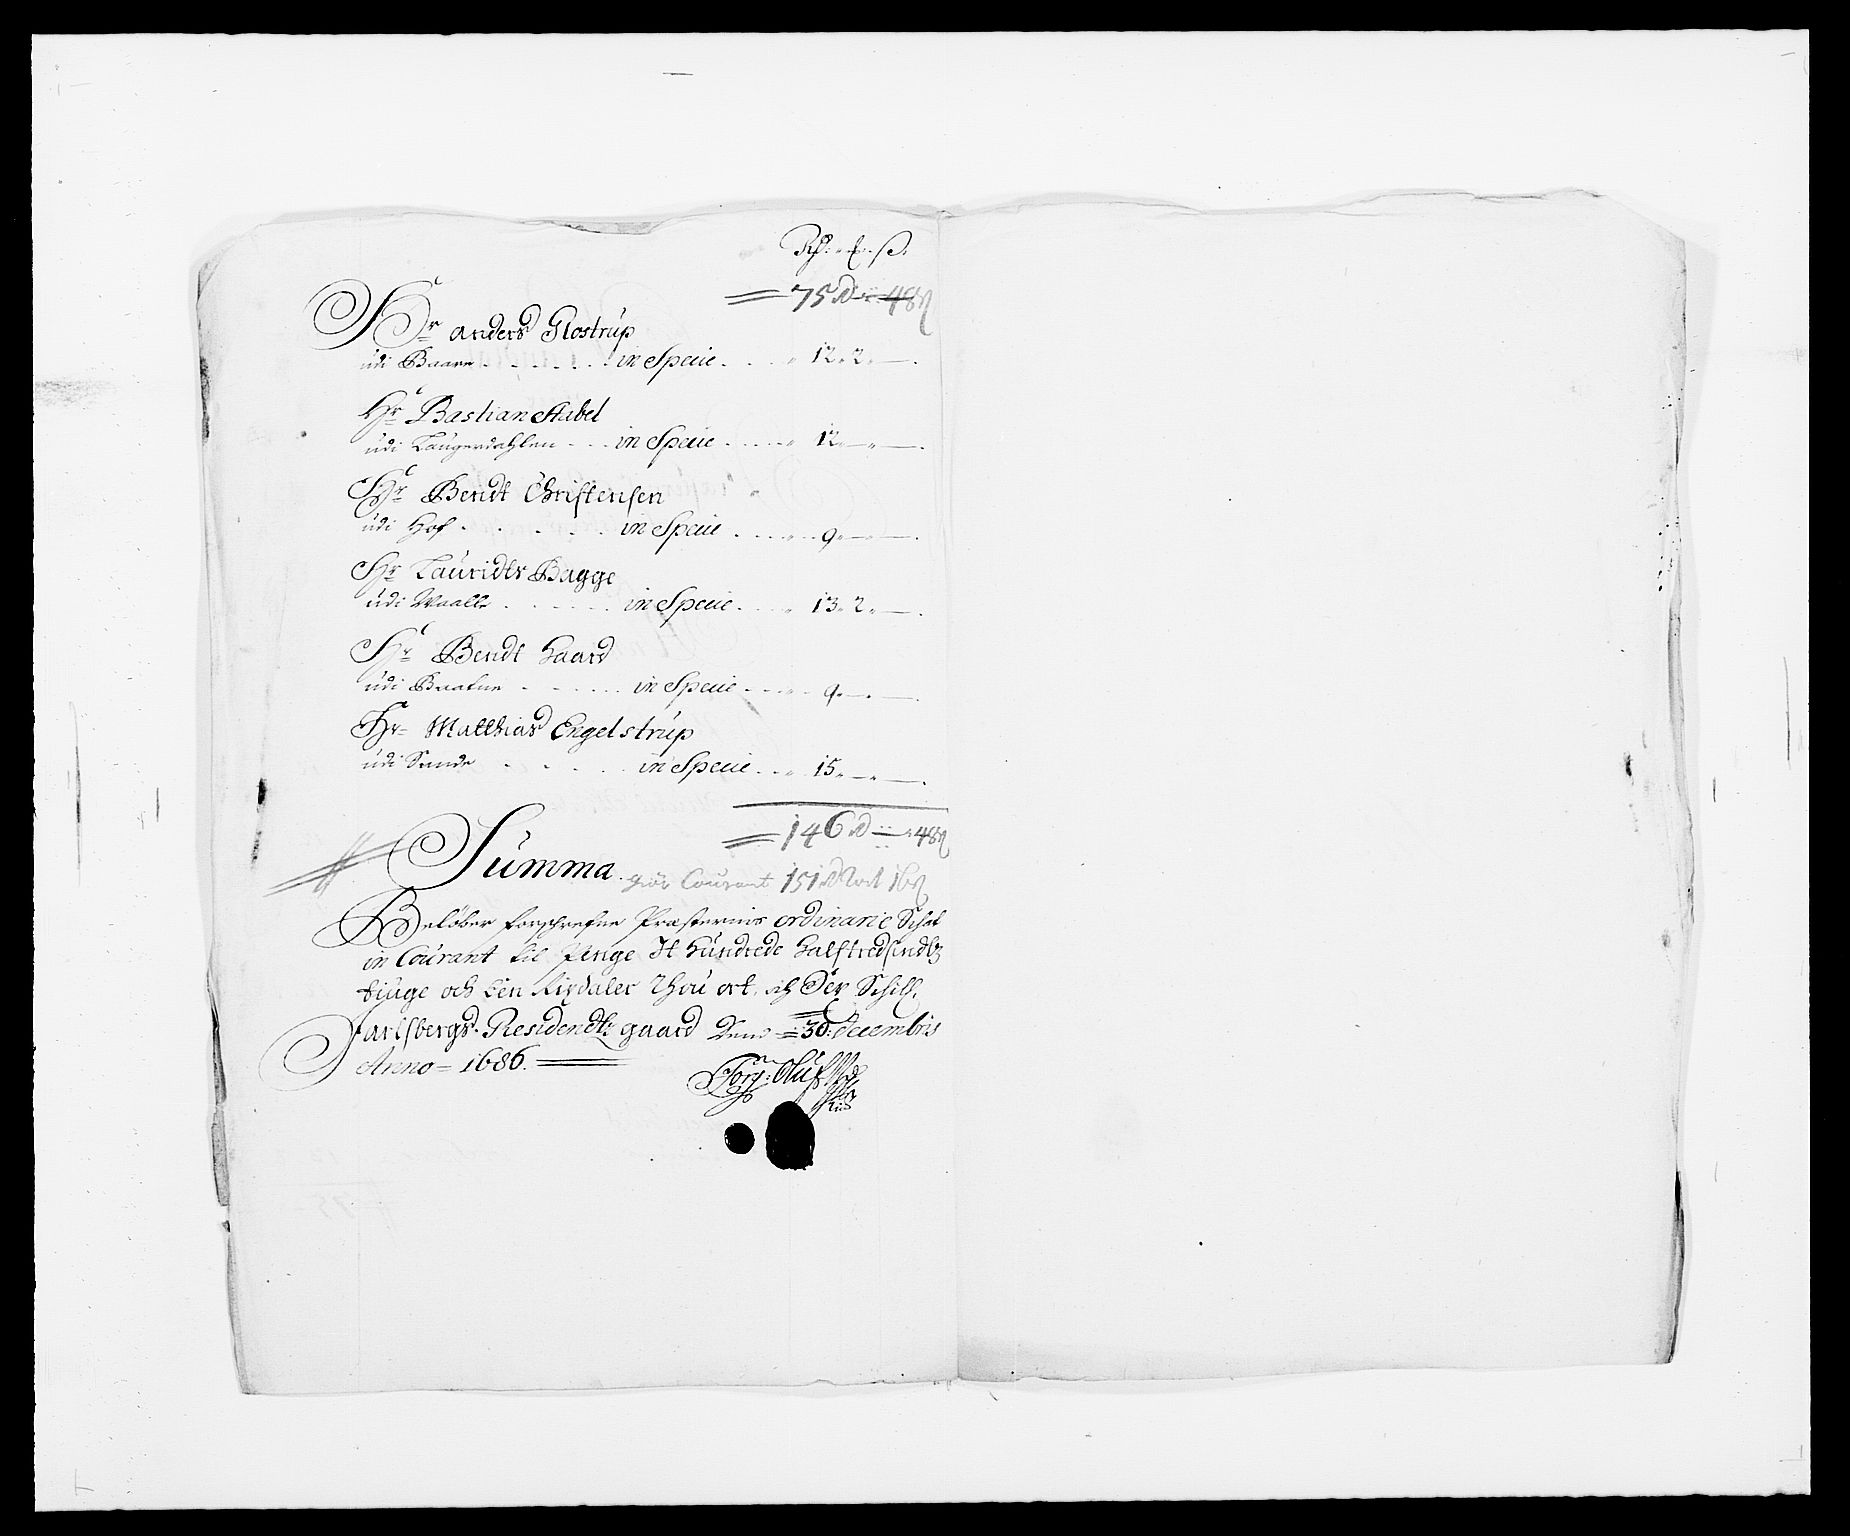 Rd: E. ß.
75 48
Hr Anders Glostrup
udi Baare in Specie 12. 2.
Hr Bastian Stabel
udi Laugerdahlen in Specie 12.
Hr Bendt Christensen
udi Hof in Specie 9.
Hr Lauridts Bagge
udi Waalle in Specie 13. 2.
Hr Bendt Gaard
udi Baafne in Specie 9.
Hr Matthias Engelstrup
udi Sande in Specie 15.
146 48
Summa. giör Courant 151 2 ort 16
Belöber forschrefne Præsternis ordinarie Schat
in Courant til Penge It Hundrede halftredsindtz
tiuge och Een Rixdaler Thou ort, och Schill.
Jarlsbergs Residendtz gaard Dend 30: Decembris
Anno 1686.